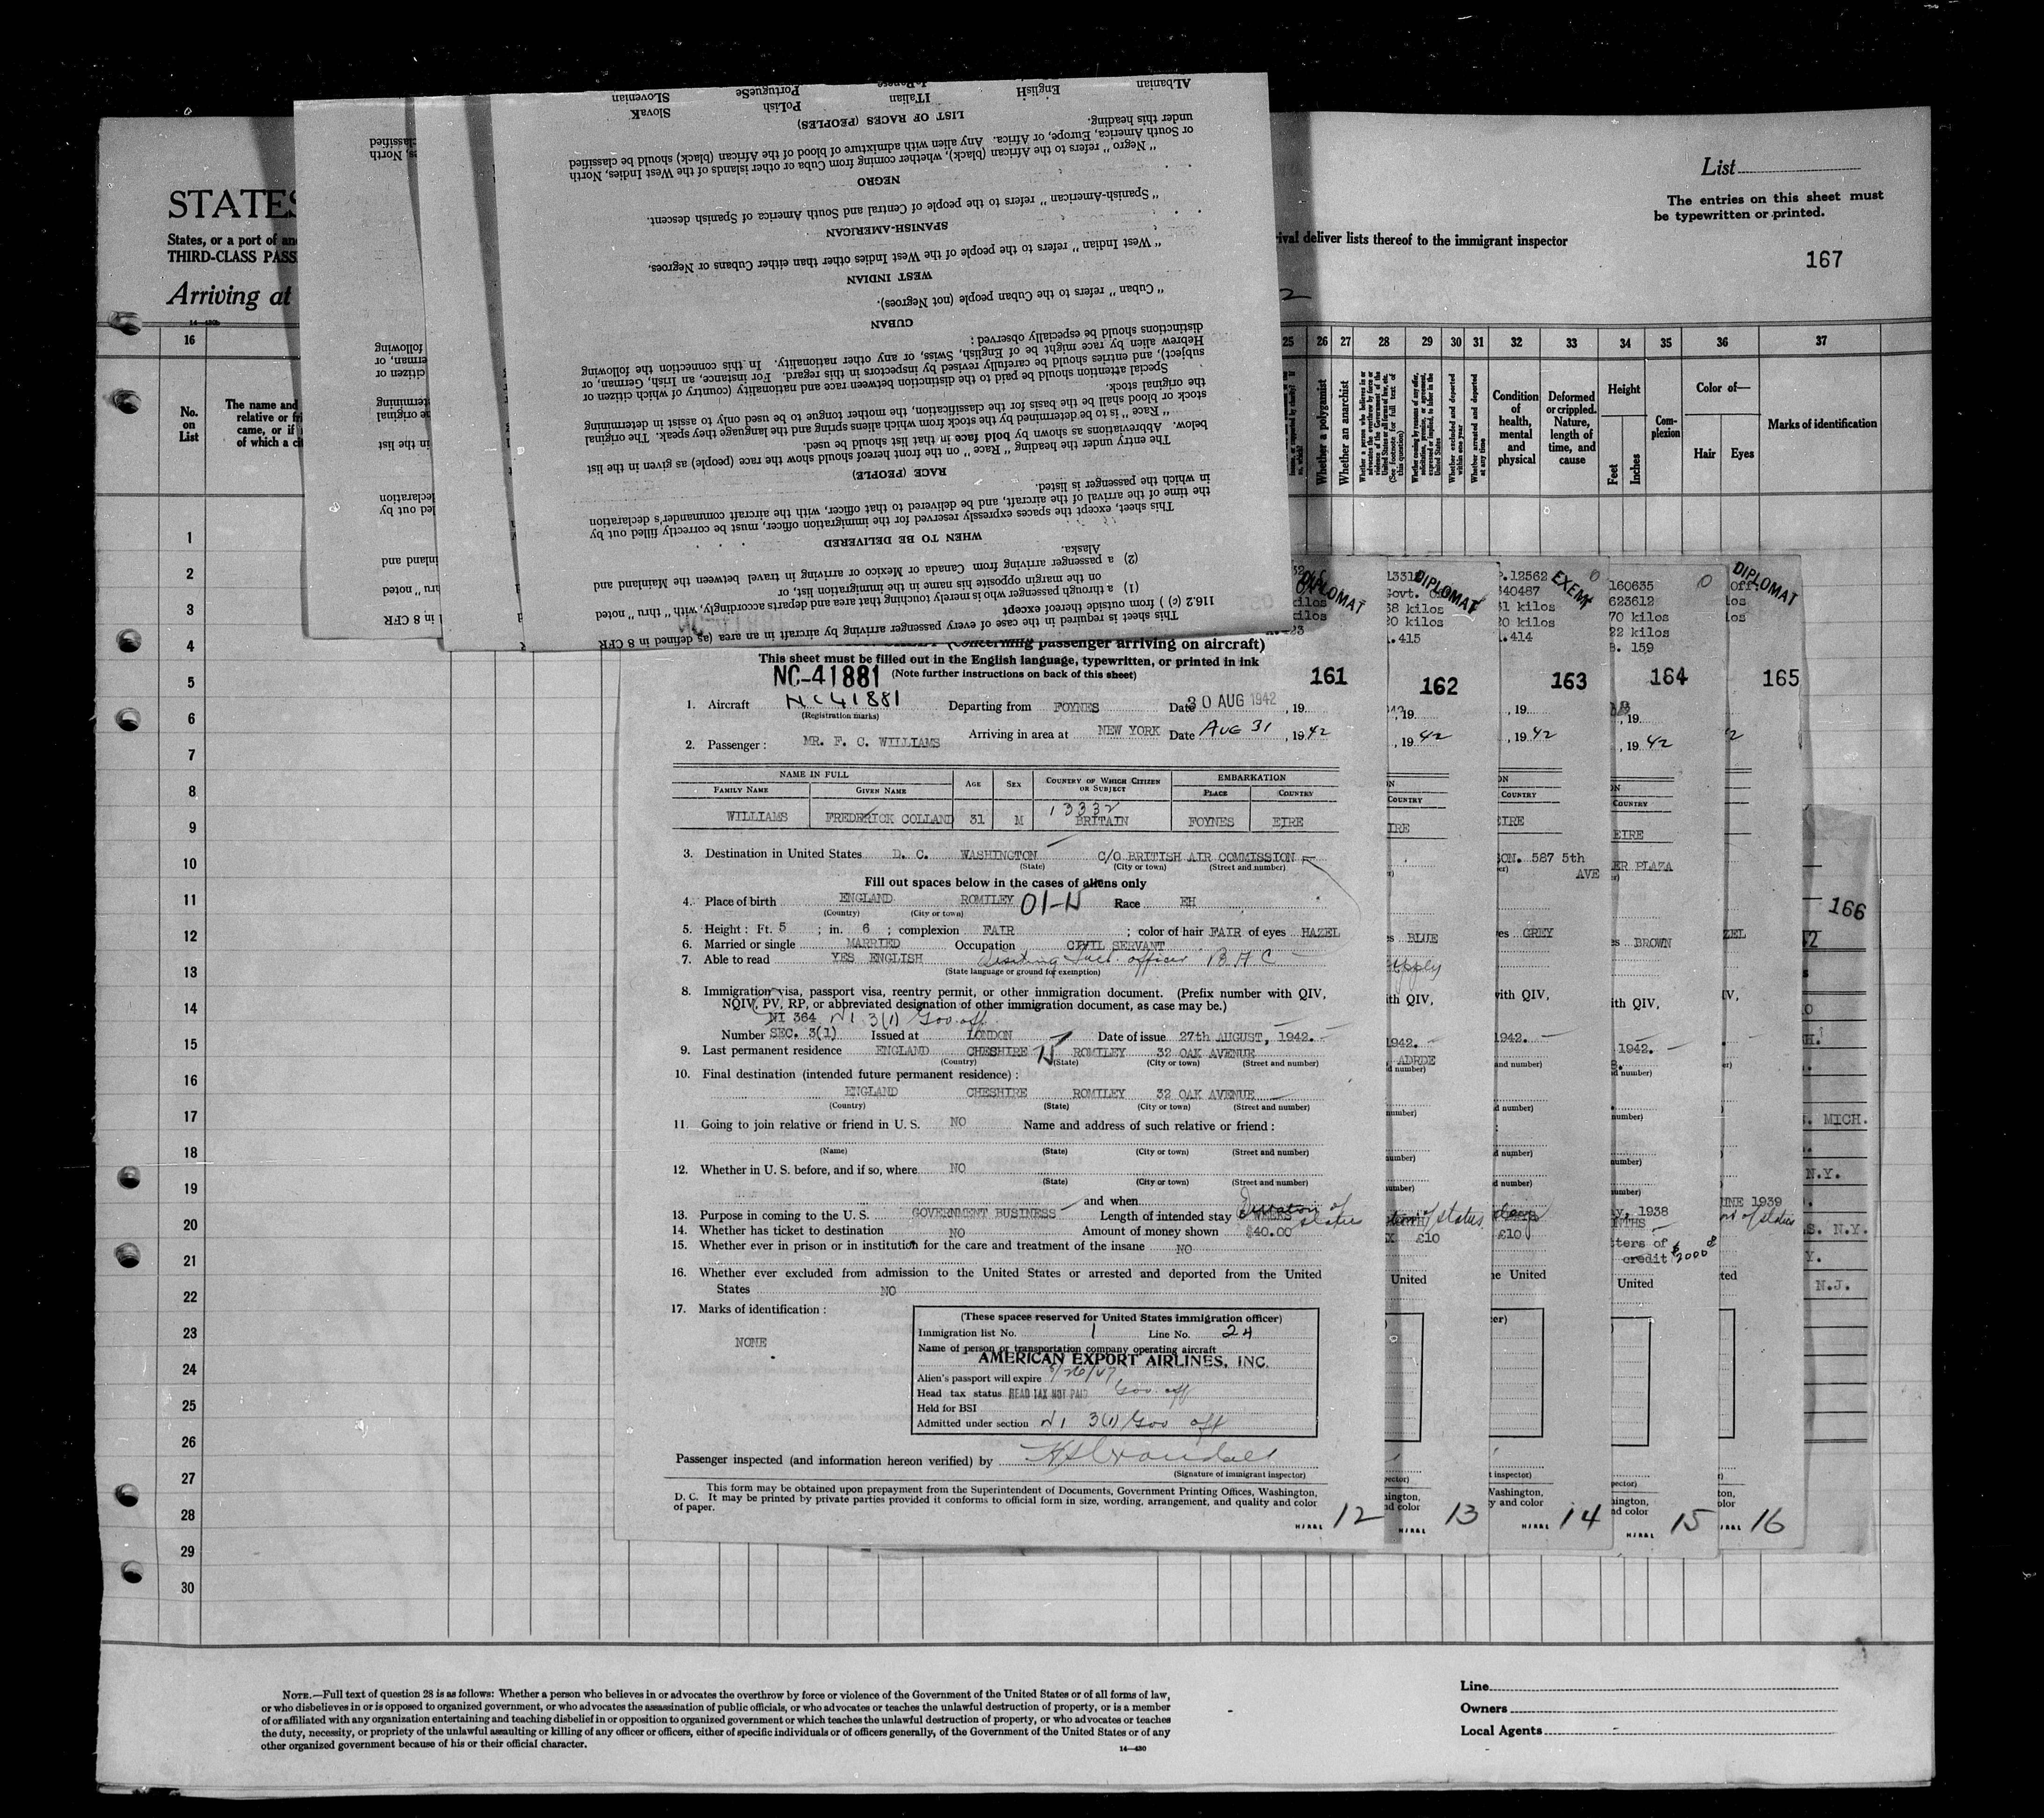 STATES
States, or a port of an
THIRD-CLASS PASS
Arriving at
14—430b
List
The entries on this sheet must
be typewritten or printed.
rival deliver lists thereof to the immigrant inspector
167
16
25 26 27 28 29 30 31 32 33 34 35 36 37
No.
on
List
The name and
relative or fri
came, or if
of which a cit
Whether a polygamist
Whether an anarchist
Whether excluded and deported within one year
Whether arrested and deported at any time
Condition of health, mental and physical
Deformed or crippled. Nature, length of time, and cause
Height
Feet
Inches
Com-
plexion
Color of—
Hair Eyes
Marks of identification
1
2
3
4
5
6
7
8
9
10
11
12
13
14
15
16
17
18
19
20
21
22
23
24
25
26
27
28
29
30
This sheet is required in the case of every passenger arriving by aircraft in an area (as defined in 8 CFR
116.2 (c) ) from outside thereof except
(1) a through passenger who is merely touching that area and departs accordingly, with "thru" noted
on the margin opposite his name in the immigration list, or
(2) a passenger arriving from Canada or Mexico or arriving in travel between the Mainland and
Alaska.
WHEN TO BE DELIVERED
This sheet, except the spaces expressly reserved for the immigration officer, must be correctly filled out by
the time of the arrival of the aircraft, and be delivered to that officer, with the aircraft commander's declaration
in which the passenger is listed.
RACE (PEOPLE)
The entry under the heading "Race" on the front hereof should show the race (people) as given in the list
below. Abbreviations as shown by bold face in that list should be used.
"Race" is to be determined by the stock from which aliens spring and the language they speak. The original
stock or blood shall be the basis for the classification, the mother tongue to be used only to assist in determining
the original stock.
Special attention should be paid to the distinction between race and nationality (country of which citizen or
subject), and entries should be carefully revised by inspectors in this regard. For instance, an Irish, German, or
Hebrew alien by race might be of English, Swiss, or any other nationality. In this connection the following
distinctions should be especially observed:
CUBAN
"Cuban" refers to the Cuban people (not Negroes).
WEST INDIAN
"West Indian" refers to the people of the West Indies other than either Cubans or Negroes.
SPANISH-AMERICAN
"Spanish-American" refers to the people of Central and South America of Spanish descent.
NEGRO
"Negro" refers to the African (black), whether coming from Cuba or other islands of the West Indies, North
or South America, Europe, or Africa. Any alien with admixture of blood of the African (black) should be classified
under this heading.
LIST OF RACES (PEOPLES)
ALbanian EnglisH ITalian PoLish SlovaK
PortuguеSe SLovenian
(concerning passenger arriving on aircraft)
This sheet must be filled out in the English language, typewritten, or printed in ink
NC-41881 (Note further instructions on back of this sheet)
161
1. Aircraft NC41881 Departing from FOYNES Date 30 AUG 1942 , 19
(Registration marks)
2. Passenger: MR. F. C. WILLIAMS Arriving in area at NEW YORK Date AUG 31 , 1942
NAME IN FULL AGE SEX COUNTRY OF WHICH CITIZEN OR SUBJECT EMBARKATION
FAMILY NAME GIVEN NAME PLACE COUNTRY
13332
WILLIAMS FREDERICK COLLAND 31 M BRITAIN FOYNES EIRE
3. Destination in United States D. C. WASHINGTON C/O BRITISH AIR COMMISSION
(State) (City or town) (Street and number)
Fill out spaces below in the cases of aliens only
4. Place of birth ENGLAND ROMILEY 01-N Race EH
(Country) (City or town)
5. Height: Ft. 5 ; in. 6 ; complexion FAIR ; color of hair FAIR of eyes HAZEL
6. Married or single MARRIED Occupation CIVIL SERVANT
7. Able to read YES ENGLISH Visiting officer B A C
(State language or ground for exemption)
8. Immigration visa, passport visa, reentry permit, or other immigration document. (Prefix number with QIV,
NQIV, PV, RP, or abbreviated designation of other immigration document, as case may be.)
NI 364 NI 3(1) Gov. off.
Number SEC. 3(1) Issued at LONDON Date of issue 27th AUGUST, 1942.
9. Last permanent residence ENGLAND CHESHIRE N ROMILEY 32 OAK AVENUE
(Country) (State) (City or town) (Street and number)
10. Final destination (intended future permanent residence):
ENGLAND CHESHIRE ROMILEY 32 OAK AVENUE
(Country) (State) (City or town) (Street and number)
11. Going to join relative or friend in U. S. NO Name and address of such relative or friend:
(Name) (State) (City or town) (Street and number)
12. Whether in U. S. before, and if so, where NO
(State) (City or town) (Street and number)
and when
13. Purpose in coming to the U. S. GOVERNMENT BUSINESS Length of intended stay WEEKS Duration of status
14. Whether has ticket to destination NO Amount of money shown $40.00
15. Whether ever in prison or in institution for the care and treatment of the insane NO
16. Whether ever excluded from admission to the United States or arrested and deported from the United
States NO
17. Marks of identification:
NONE
(These spaces reserved for United States immigration officer)
Immigration list No. 1 Line No. 24
Name of person or transportation company operating aircraft
AMERICAN EXPORT AIRLINES, INC.
Alien's passport will expire
Head tax status HEAD TAX NOT PAID Gov. off
Held for BSI
Admitted under section NI 3(1) Gov off
Passenger inspected (and information hereon verified) by
(Signature of immigrant inspector)
This form may be obtained upon prepayment from the Superintendent of Documents, Government Printing Offices, Washington,
D. C. It may be printed by private parties provided it conforms to official form in size, wording, arrangement, and quality and color
of paper.
12
DIPLOMAT
Govt.
38 kilos
20 kilos
.415
162
, 1942
COUNTRY
IRE
BLUE
1942.
£10
United
13
DIPLOMAT
P.12562
340487
31 kilos
20 kilos
.414
163
, 1942
COUNTRY
EIRE
SON. 587 5th
AVE
GREY
with QIV,
1942.
£10
United
14
EXEM
160635
623612
70 kilos
22 kilos
B. 159
164
, 1942
COUNTRY
EIRE
ER PLAZA
BROWN
ith QIV,
1942.
y, 1938
NTHS
tters of
credit $2000
United
15
DIPLOMAT
165
ZEL
UNE 1939
16
166
MICH.
N.Y.
S. N.Y.
Y.
N.J.
NOTE.—Full text of question 28 is as follows: Whether a person who believes in or advocates the overthrow by force or violence of the Government of the United States or of all forms of law,
or who disbelieves in or is opposed to organized government, or who advocates the assassination of public officials, or who advocates or teaches the unlawful destruction of property, or is a member
of or affiliated with any organization entertaining and teaching disbelief in or opposition to organized government or which teaches the unlawful destruction of property, or who advocates or teaches
the duty, necessity, or propriety of the unlawful assaulting or killing of any officer or officers, either of specific individuals or of officers generally, of the Government of the United States or of any
other organized government because of his or their official character.
14—430
Line
Owners
Local Agents